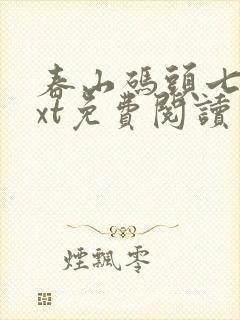 春山碼頭七
xt免費閱讀
煙飄零